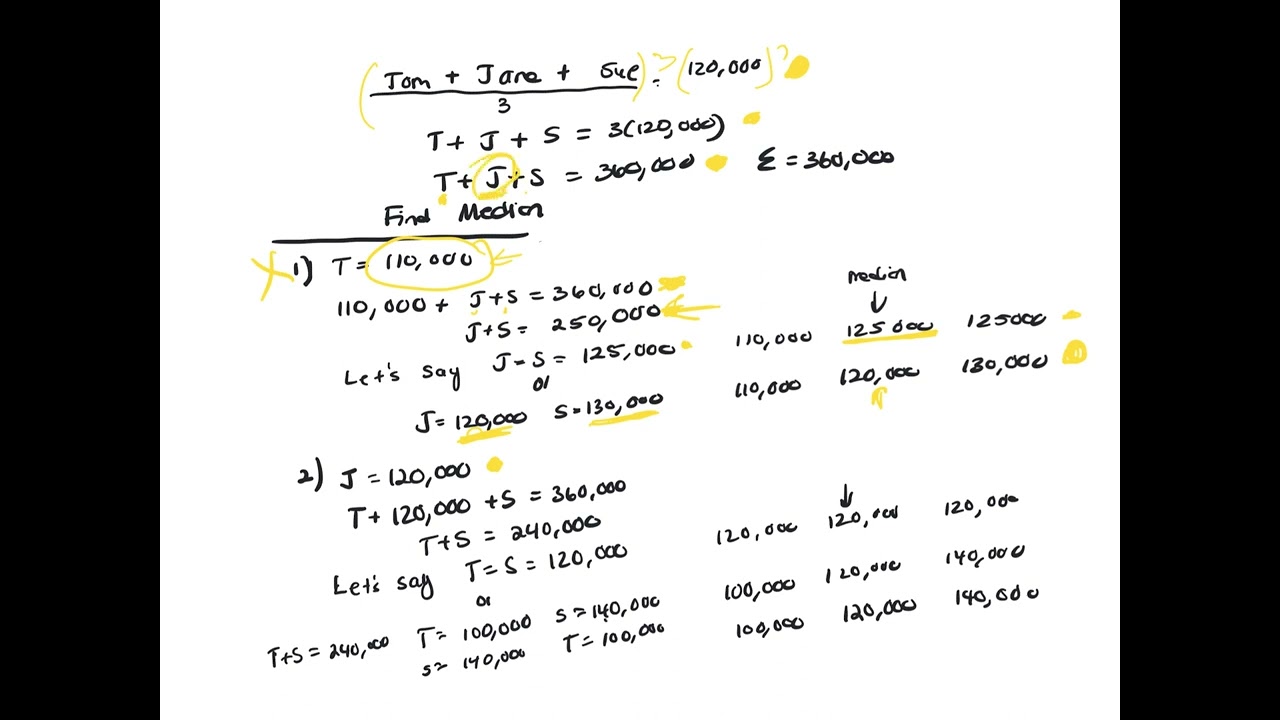 (Tom + Jane + Sue)? (120,000)?
3
T + J + S = 3(120,000)
T + J + S = 360,000 Σ = 360,000
Find Median
1) T = 110,000
110,000 + J+S = 360,000
J+S = 250,000
median
Let's say J = S = 125,000 110,000 125000 125000
or
J = 120,000 S = 130,000 110,000 120,000 130,000
2) J = 120,000
T + 120,000 + S = 360,000
T+S = 240,000
Let's say T = S = 120,000 120,000 120,000 120,000
or
T+S = 240,000 T = 100,000 S = 140,000 100,000 120,000 140,000
S = 140,000 T = 100,000 100,000 120,000 140,000